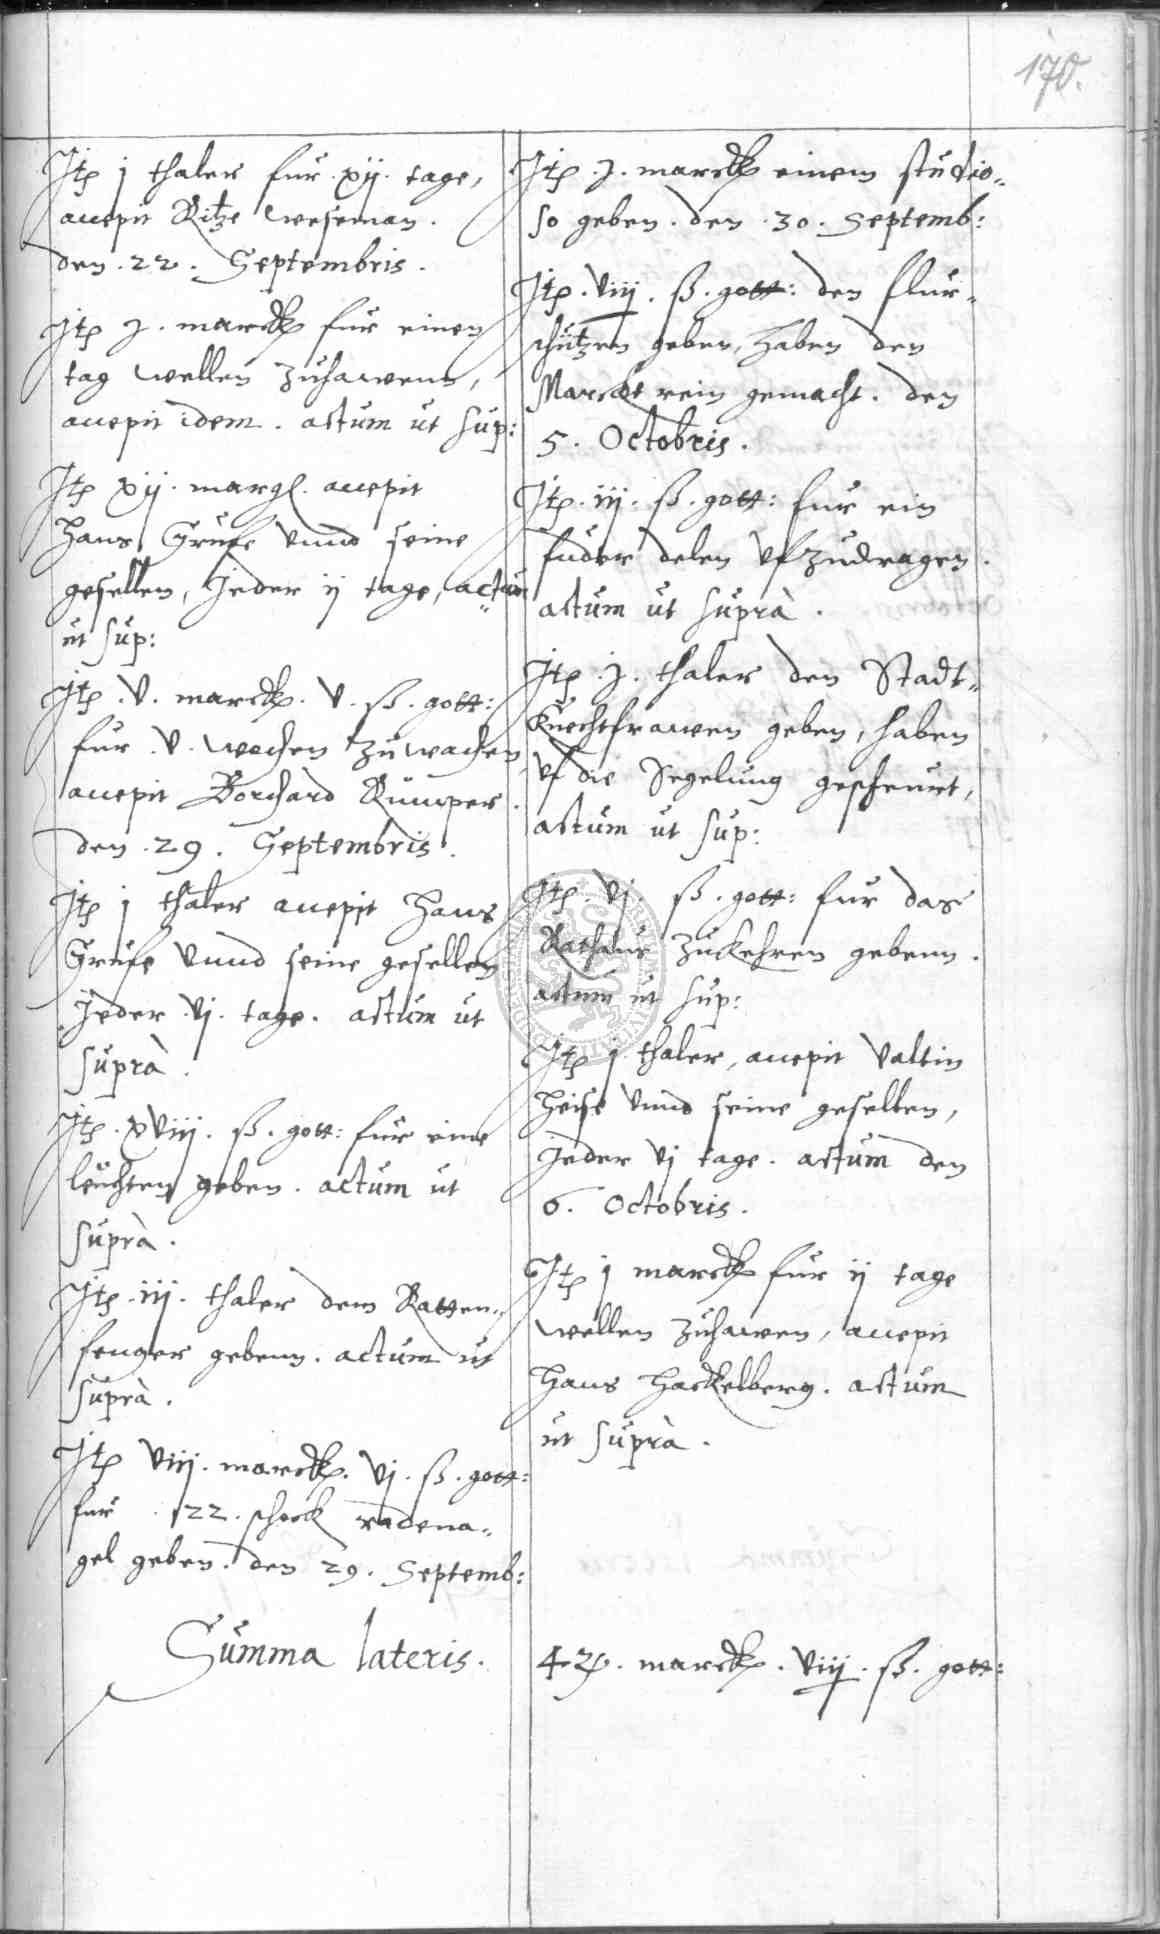 170.
Jtp j thaler fur xij. tage,
accepit Ritze Weseman.
den .22. Septembris.
Jtp j. marck fur einen
tag wellen zuhawenn,
accepit idem. actum ut sup:
Jtp xij. margk. accepit
Hans Grufe vnnd seine
gesellen, Jeder ij tage, actum
ut sup:
Jtp .v. marck. v. ß. gott:
fur .v. wochen zu wachen,
accepit Borchard Kumper.
den .29. Septembris.
Jtp j thaler accepit Hans
Grufe vnnd seine gesellen
Jeder .vj. tage. actum ut
suprà.
Jtp. xviij. ß. gott: fur eine
leuchten geben. actum ut
suprà.
Jtp .iij. thaler dem Ratten-
fenger gebenn. actum ut
suprà.
Jtp viij. marck. vj. ß. gott:
fur 122. schock
gel geben. den 29. Septemb:
Summa lateris.
Jtp .j. marck einem studio-
so geben. den .30. Septemb:
Jtp. viij. ß. gott: den flur-
schützen geben, haben den
Marckt rein gemacht. den
5. Octobris.
Jtp .iij. ß. gott: fur ein
fuder delen vfzudragen.
actum ut suprà.
Jtp .j. thaler den Stadt-
Knechtfrawen geben, haben
vf die Segelung gescheurt,
actum ut sup:
Jtp. vj. ß. gott: fur das
Rathaus zukehren gebenn.
actum ut sup:
Jtp j thaler, accepit Valtin
Heise vnnd seine gesellen,
Jeder vj tage. actum den
6. Octobris.
Jtp j marck fur ij tage
wellen zuhawen, accepit
Hans Hackelberg. actum
ut suprà.
marck. viij. ß. gott: